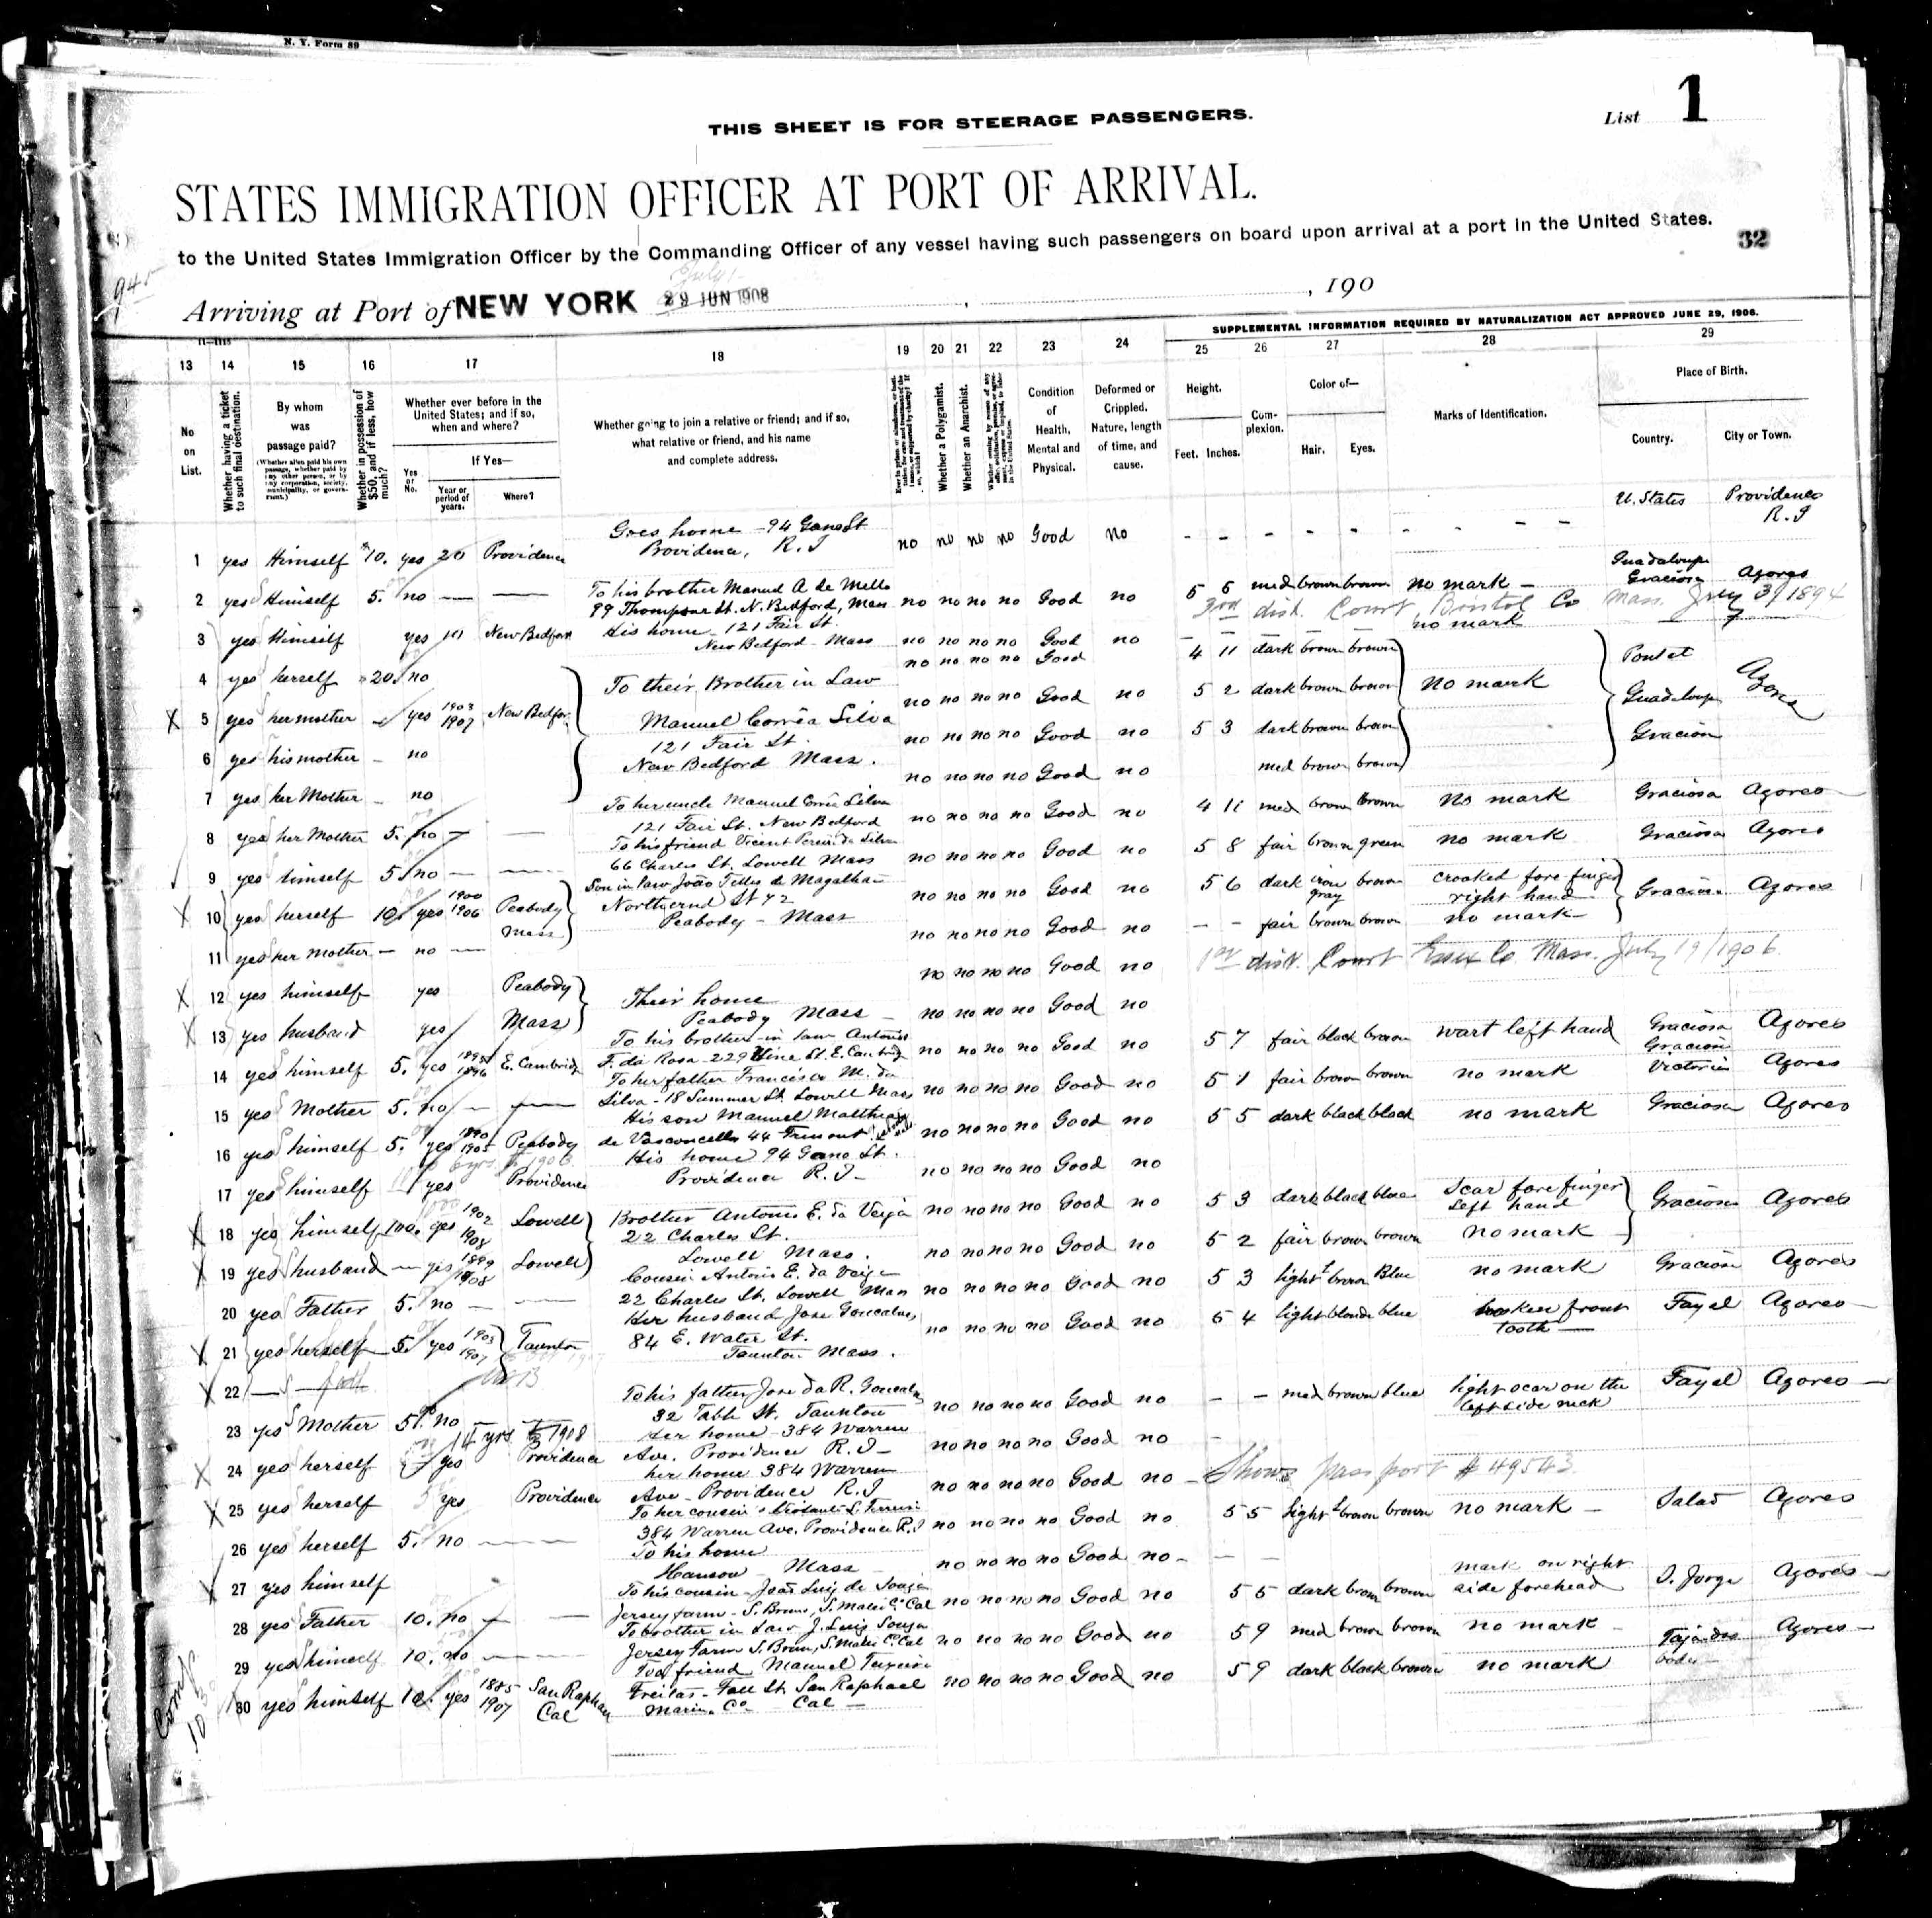 N. Y. Form 89
THIS SHEET IS FOR STEERAGE PASSENGERS.
List 1
STATES IMMIGRATION OFFICER AT PORT OF ARRIVAL.
to the United States Immigration Officer by the Commanding Officer of any vessel having such passengers on board upon arrival at a port in the United States.
32
Arriving at Port of NEW YORK 29 JUN 1908 , , 190
July 1
SUPPLEMENTAL INFORMATION REQUIRED BY NATURALIZATION ACT APPROVED JUNE 29, 1906.
13 14 15 16 17 18 19 20 21 22 23 24 25 26 27 28 29
No on List.
Whether having a ticket to such final destination.
By whom was passage paid?
(Whether alien paid his own passage, whether paid by any other person, or by any corporation, society, municipality, or government.)
Whether in possession of $50, and if less, how much?
Whether ever before in the United States; and if so, when and where?
Yes or No.
If Yes—
Year or period of years.
Where?
Whether going to join a relative or friend; and if so, what relative or friend, and his name and complete address.
Whether a Polygamist.
Whether an Anarchist.
Condition of Health, Mental and Physical.
Deformed or Crippled. Nature, length of time, and cause.
Height.
Feet. Inches.
Complexion.
Color of—
Hair. Eyes.
Marks of Identification.
Place of Birth.
Country. City or Town.
1 yes Himself $10. yes 20 Providence Goes home - 94 Gano St Providence, R. I no no no no Good no - - - - - - - - U. States Providence R. I
2 yes Himself 5. no — — To his brother Manuel A de Mello 99 Thompson St. N. Bedford, Mass no no no no Good no 5 6 med brown brown no mark — Guadaloupe Graciosa Azores
3rd dist. Court, Bristol Co Mass. 1894
3 yes Himself yes 10 New Bedford His home - 121 Fair St. New Bedford - Mass no no no no Good no - - - - - no mark
4 yes herself 20. no To their Brother in Law no no no no Good 4 11 dark brown brown
5 yes her mother - yes 1903 1907 New Bedford Manuel Corrêa Silva no no no no Good no 5 2 dark brown brown no mark Guadaloupe Azores
6 yes his mother - no 121 Fair St. no no no no Good no 5 3 dark brown brown Graciosa
7 yes her Mother - no New Bedford Mass. no no no no Good no med brown brown
8 yes her Mother 5. no — — To her uncle Manuel Corrêa Silva 121 Fair St. New Bedford no no no no Good no 4 11 med brown brown no mark Graciosa Azores
9 yes himself 5. no — — To his friend Vicent Pereira da Silva 66 Charles St. Lowell Mass no no no no Good no 5 8 fair brown green no mark Graciosa Azores
10 yes herself 10. yes 1900 1906 Peabody Mass Son in law João Telles de Magalhaes St 42 no no no no Good no 5 6 dark iron gray brown crooked fore finger right hand Graciosa Azores
11 yes her mother — no — Peabody - Mass no no no no Good no - - fair brown brown no mark -
1st dist. Court Essex Co Mass. July 19/1906
12 yes himself yes Peabody Their home no no no no Good no
13 yes husband yes Mass Peabody Mass - no no no no Good no
14 yes himself 5. yes 1896 E. Cambridge To his brother-in law Antonio F. da Rosa - 229 St. E. Cambridge no no no no Good no 5 7 fair black brown wart left hand Graciosa Azores
15 yes Mother 5. no — — To her father Francisco M. da Silva - 18 Summer St. Lowell Mass no no no no Good no 5 1 fair brown brown no mark Graciosa Victoria Azores
16 yes himself 5. yes 1890 1905 Peabody His son Manuel Mattheas de Vasconcellos 44 Tremont no no no no Good no 5 5 dark black black no mark Graciosa Azores
17 yes himself yes Providence His home 94 Gano St. Providence R. I - no no no no Good no
18 yes himself 100. yes 1902 1908 Lowell Brother Antonio E. da Veiga 22 Charles St. Lowell Mass. no no no no Good no 5 3 dark black blue Scar fore finger left hand Graciosa Azores
19 yes husband — yes 1899 1908 Lowell no no no no Good no 5 2 fair brown brown no mark
20 yes Father 5. no — — Cousin Antonio E. da Veiga 22 Charles St. Lowell Mass no no no no Good no 5 3 light brown Blue no mark Graciosa Azores
21 yes herself 5. yes 1903 1907 Taunton Her husband Jose Goncalves 84 E. Water St. Taunton Mass. no no no no Good no 5 4 light blonde blue broken front tooth — Fayal Azores —
22
23 yes Mother 5. no To his father Jose da R. Goncalves 32 St. Taunton no no no no Good no - - med brown blue light scar on the left side neck Fayal Azores —
24 yes herself yes 14 yrs to 1908 Providence Her home - 384 Warren Ave. Providence R. I - no no no no Good no -
25 yes herself yes Providence her home 384 Warren Ave - Providence R. I no no no no Good no - Shows passport # 49543
26 yes herself 5. no — — To her cousin 384 Warren Ave. Providence R. I no no no no Good no 5 5 light brown brown no mark - Azores
27 yes himself To his home Hanson Mass no no no no Good no - - -
28 yes Father 10. no — — To his cousin - João Luiz de Souza Jersey farm - S. Bruno, S. Mateo Co Cal no no no no Good no 5 5 dark brown brown mark on right side forehead S. Jorge Azores —
29 yes himself 10. no — — To brother in law J. Luiz Souza Jersey Farm S. Bruno, S. Mateo Co. Cal no no no no Good no 5 9 med brown brown no mark - Azores —
30 yes himself 10. yes 1885 1907 San Raphael Cal friend Manuel Teixeira Freitas - St. San Raphael Marin Co Cal — no no no no Good no 5 9 dark black brown no mark